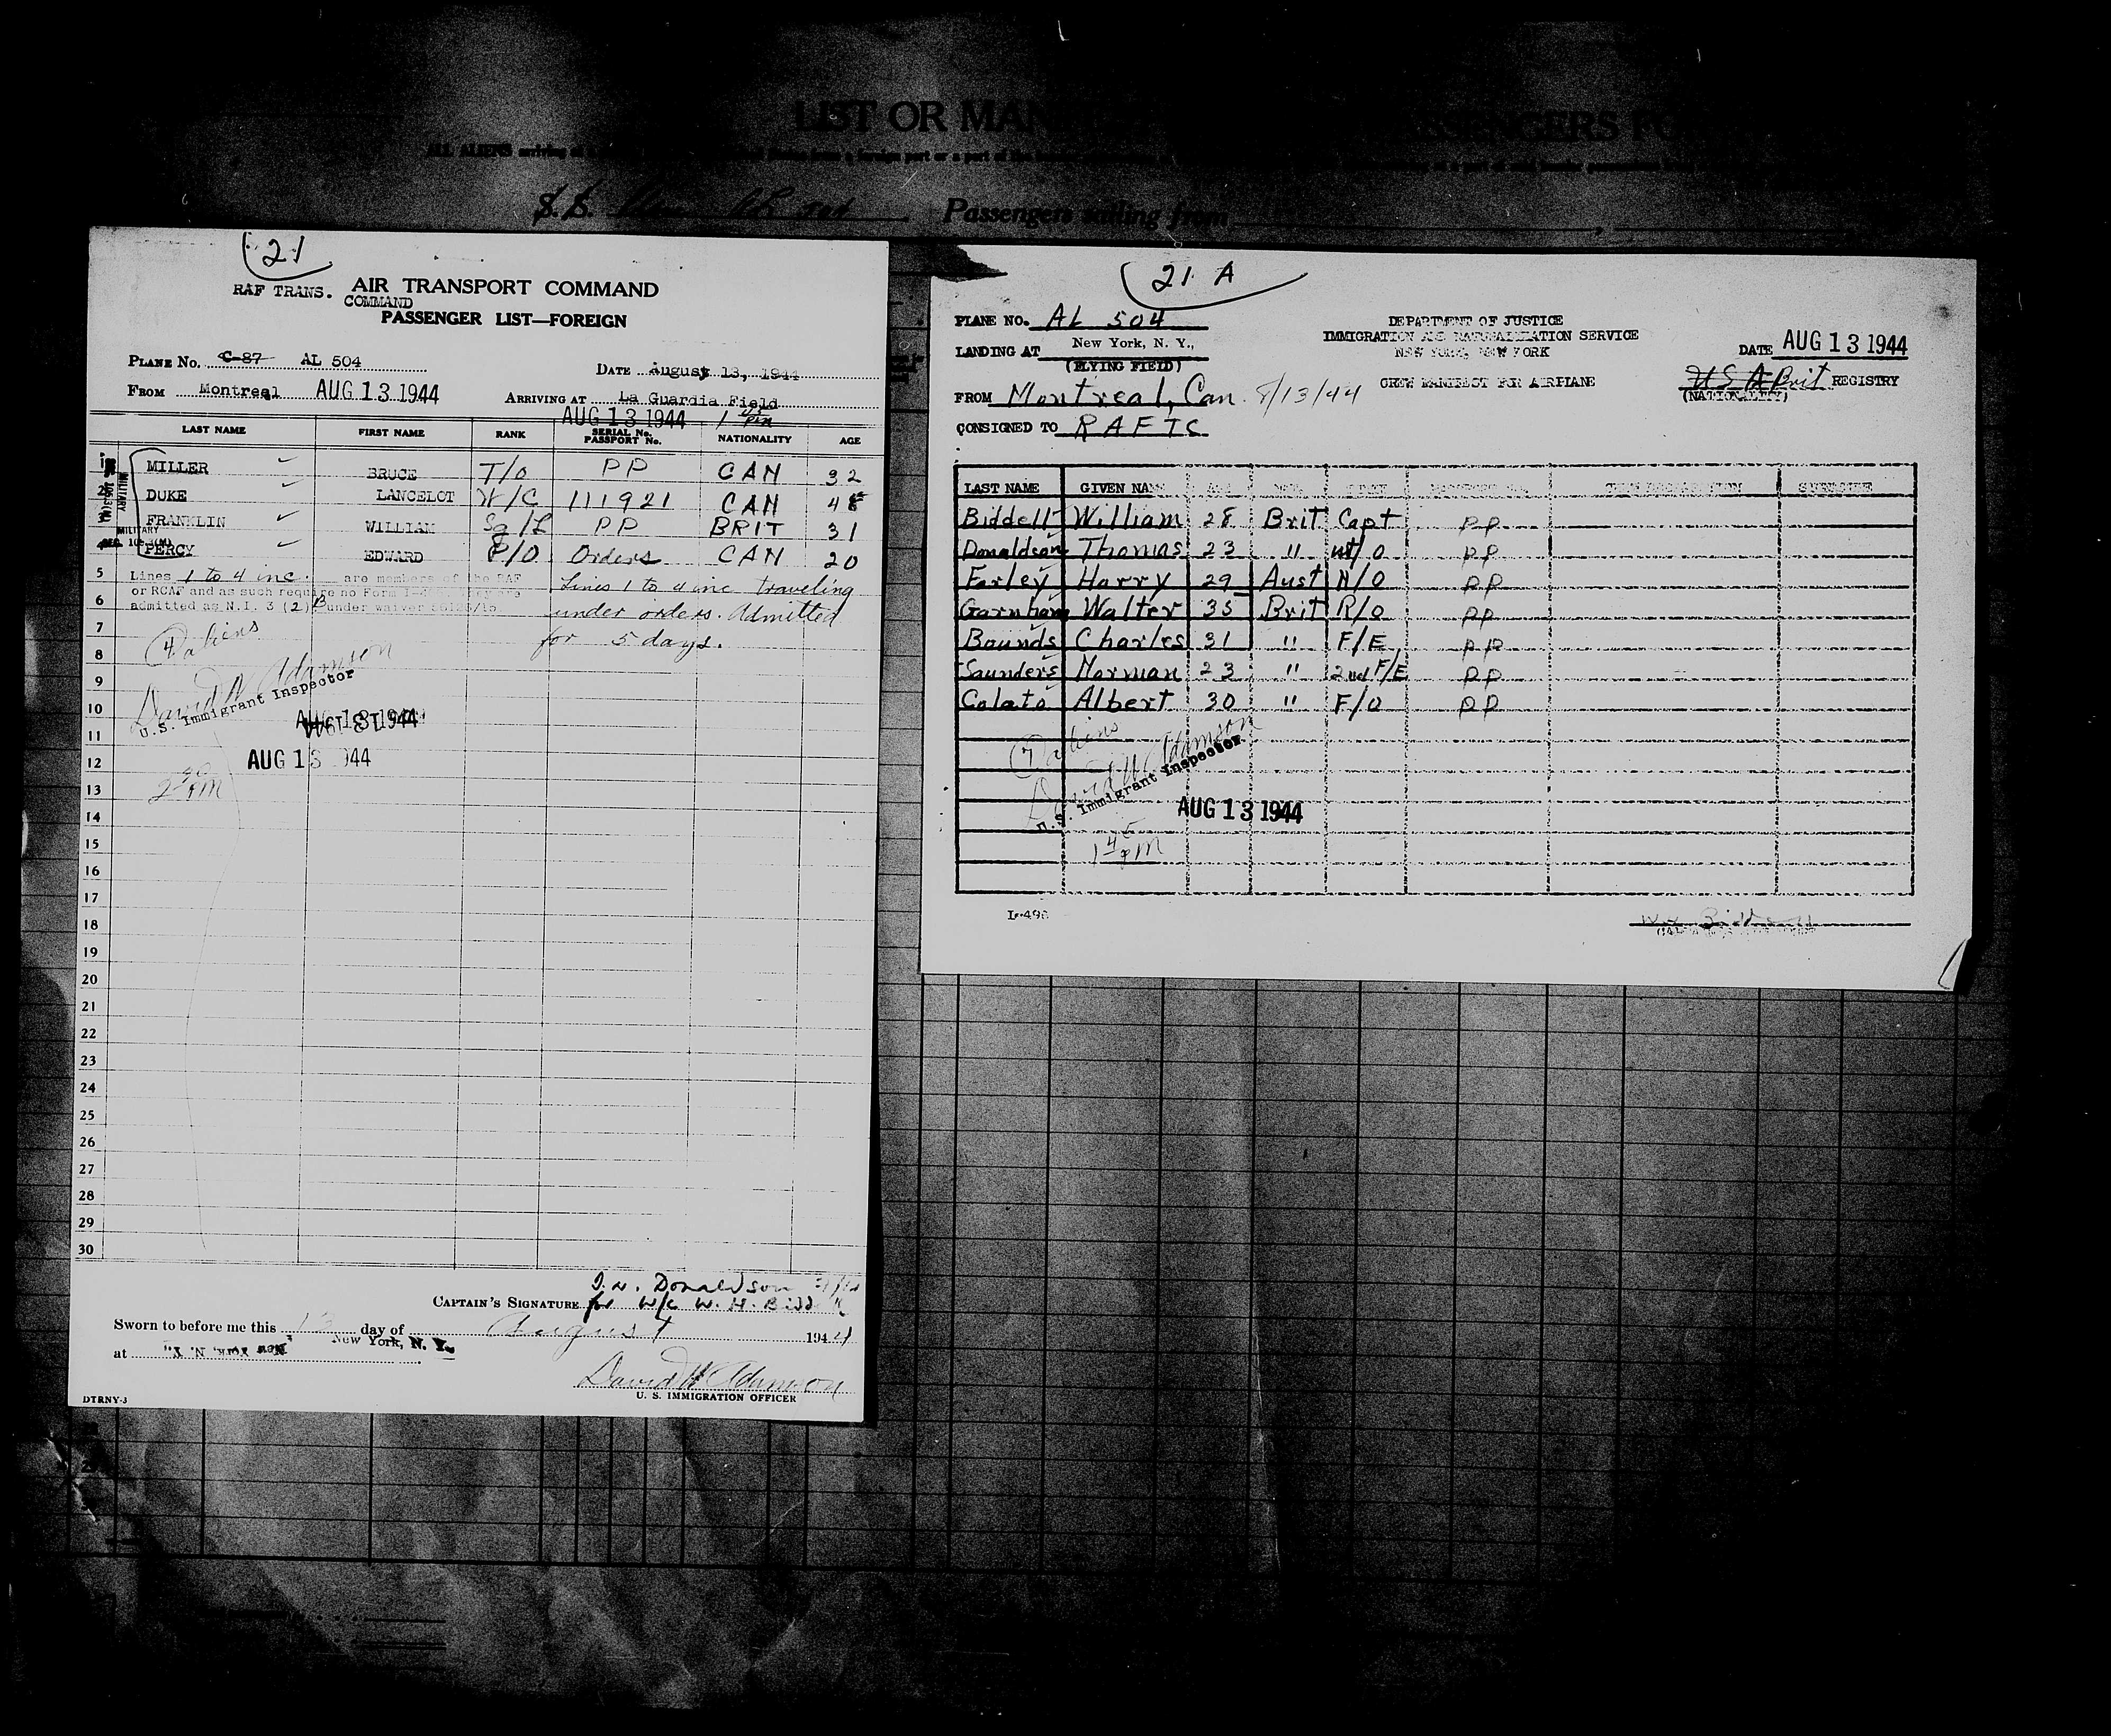 LIST OR MAN
PASSENGERS FO
ALL ALIENS arriving at a
S. S. Plane AL 504 Passengers sailing from
21
AIR TRANSPORT COMMAND
RAF TRANS.
COMMAND
PASSENGER LIST—FOREIGN
PLANE No. C-87 AL 504
DATE August 13, 1944
FROM Montreal AUG 13 1944
ARRIVING AT La Guardia Field
AUG 13 1944 1 45 PM
LAST NAME FIRST NAME RANK SERIAL No. PASSPORT No. NATIONALITY AGE
1 MILLER BRUCE T/O PP CAN 32
2 DUKE LANCELOT W/C 111921 CAN 48
FRANKLIN WILLIAM Sq/L PP BRIT 31
4 PERCY EDWARD P/O Orders CAN 20
MILITARY
MILITARY
5 Lines 1 to 4 inc. are members of the RAF
or RCAF and as such require no Form
6 admitted as N.I. 3 (2) B under waiver
Lines 1 to 4 inc traveling
under orders. Admitted
for 5 days.
7
8
9
10
11
12
13
14
15
16
17
18
19
20
21
22
23
24
25
26
27
28
29
30
4 aliens
David W Adamson
U.S. Immigrant Inspector
AUG 13 1944
AUG 13 1944
2 PM
CAPTAIN'S SIGNATURE
Donaldson
for W/C W. H. Bidd
Sworn to before me this 13 day of August 1944
New York, N. Y.
at New York, N. Y.
David W Adamson
U. S. IMMIGRATION OFFICER
DTRNY-3
21 A
PLANE NO. AL 504
LANDING AT New York, N. Y.,
(FLYING FIELD)
FROM Montreal, Can. 8/13/44
CONSIGNED TO RAFTC
DEPARTMENT OF JUSTICE
IMMIGRATION AND NATURALIZATION SERVICE
NEW YORK, NEW YORK
CREW MANIFEST FOR AIRPLANE
DATE AUG 13 1944
USA Brit REGISTRY
(NATIONALITY)
LAST NAME GIVEN NAME
Biddell William 28 Brit Capt PP
Donaldson Thomas 23 " O PP
Farley Harry 29 Aust N/O PP
Garnham Walter 35 Brit R/O PP
Bounds Charles 31 " F/E PP
Saunders Norman 23 " 2nd F/E PP
Colato Albert 30 " F/O PP
7 aliens
David W Adamson
U.S. Immigrant Inspector
AUG 13 1944
1 45 PM
I-498